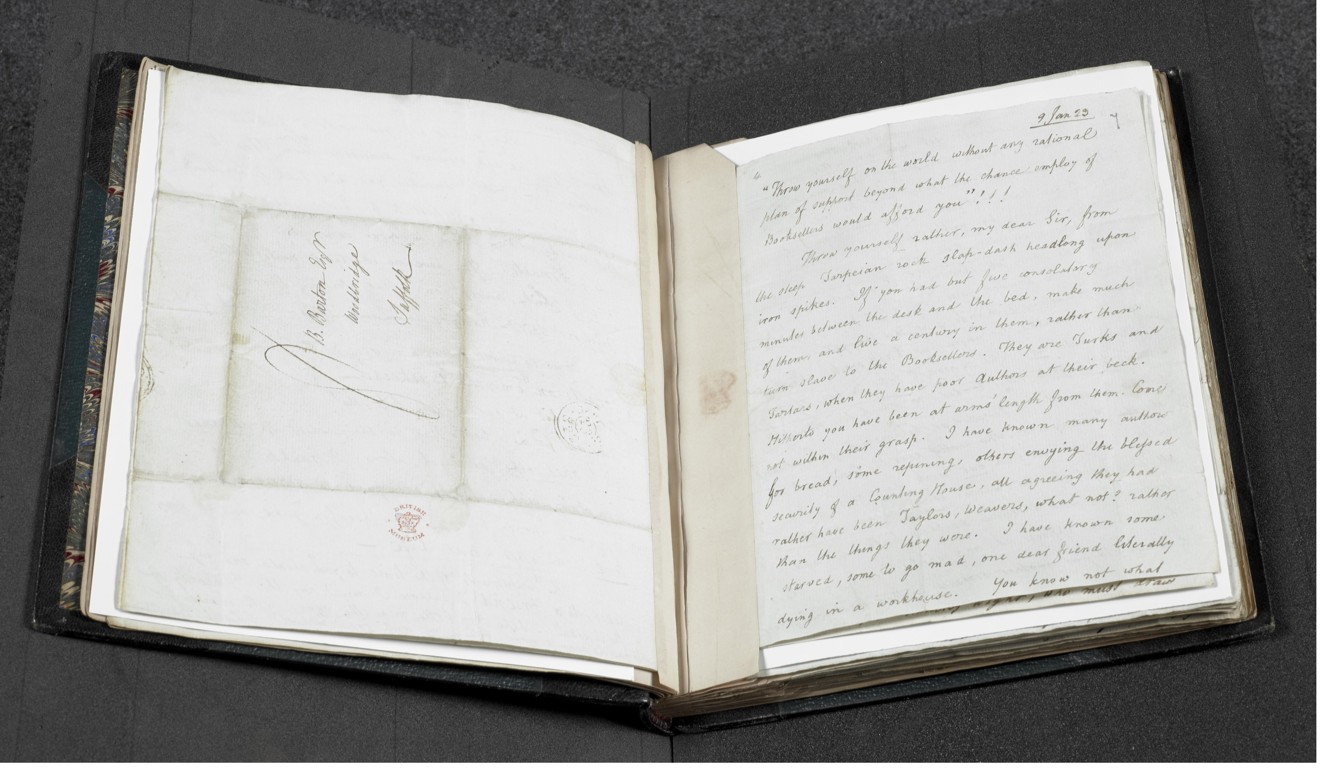 B. Barton Esqr
Woodbridge
Suffolk
BRITISH
MUSEUM
9 Jan 23
7
"Throw yourself on the world without any rational
plan of support beyond what the chance employ of
Booksellers would afford you"!!!
Throw yourself rather, my dear Sir, from
the steep Tarpeian rock slap-dash headlong upon
iron spikes. If you had but five consolatory
minutes between the desk and the bed, make much
of them, and live a century in them, rather than
turn slave to the Booksellers. They are Turks and
Tartars, when they have poor Authors at their beck.
Hitherto you have been at arms' length from them. Come
not within their grasp. I have known many authors
for bread, some repining, others envying the blessed
security of a Counting House, all agreeing they had
rather have been Taylors, Weavers, what not? rather
than the things they were. I have known some
starved, some to go mad, one dear friend literally
dying in a workhouse. You know not what
must draw